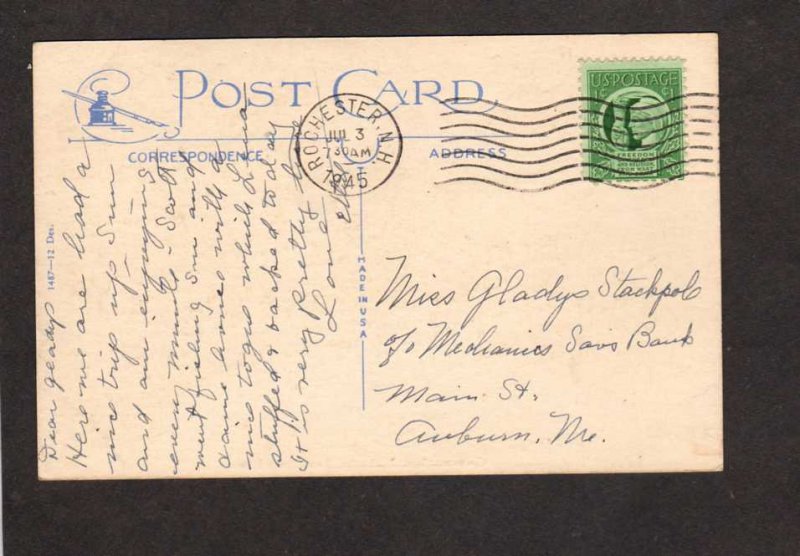 POST CARD
CORRESPONDENCE
ADDRESS
ROCHESTER, N.H.
JUL 3
7 30 AM
1945
U.S. POSTAGE
1¢
1¢
FREEDOM
1487—12 Des.
MADE IN U.S.A.
Dear Gladys
Here we are had a
nice trip up Sun
and am enjoying
every minute – Scott
went fishing Sun and
came home with a
nice togue which Lena
stuffed & baked to day
It is very pretty here
Love
Miss Gladys Stackpole
c/o Mechanics Savs Bank
Main St.
Auburn, Me.